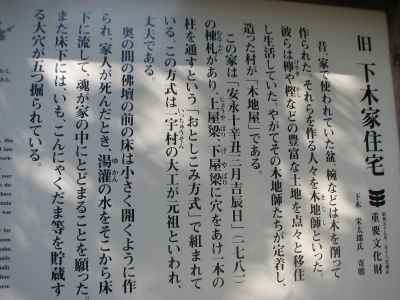 旧 下木家住宅
重要文化財
下木 栄太郎氏 寄贈
昔、家で使われていた盆、椀などは木を削って
作られた。それらを作る人々を木地師といった。
彼らは欅や樫などの豊富な土地を点々と移住
し生活していた。やがてその木地師たちが定着し、
造った村が「木地屋」である。
この家は「安永十辛丑三月吉辰日」(一七八一)
の棟札があり、上屋梁、下屋梁に穴をあけ一本の
柱を通すという「おとしこみ方式」で組まれて
いる。この方式は一宇村の大工が元祖といわれ、
丈夫である。
奥の間の佛壇の前の床は小さく開くように作
られ、家人が死んだとき、湯灌の水をそこから床
下に流して、魂が家の中にとどまることを願った。
また床下には、いも、こんにゃくだま等を貯蔵す
る大穴が五つ掘られている。